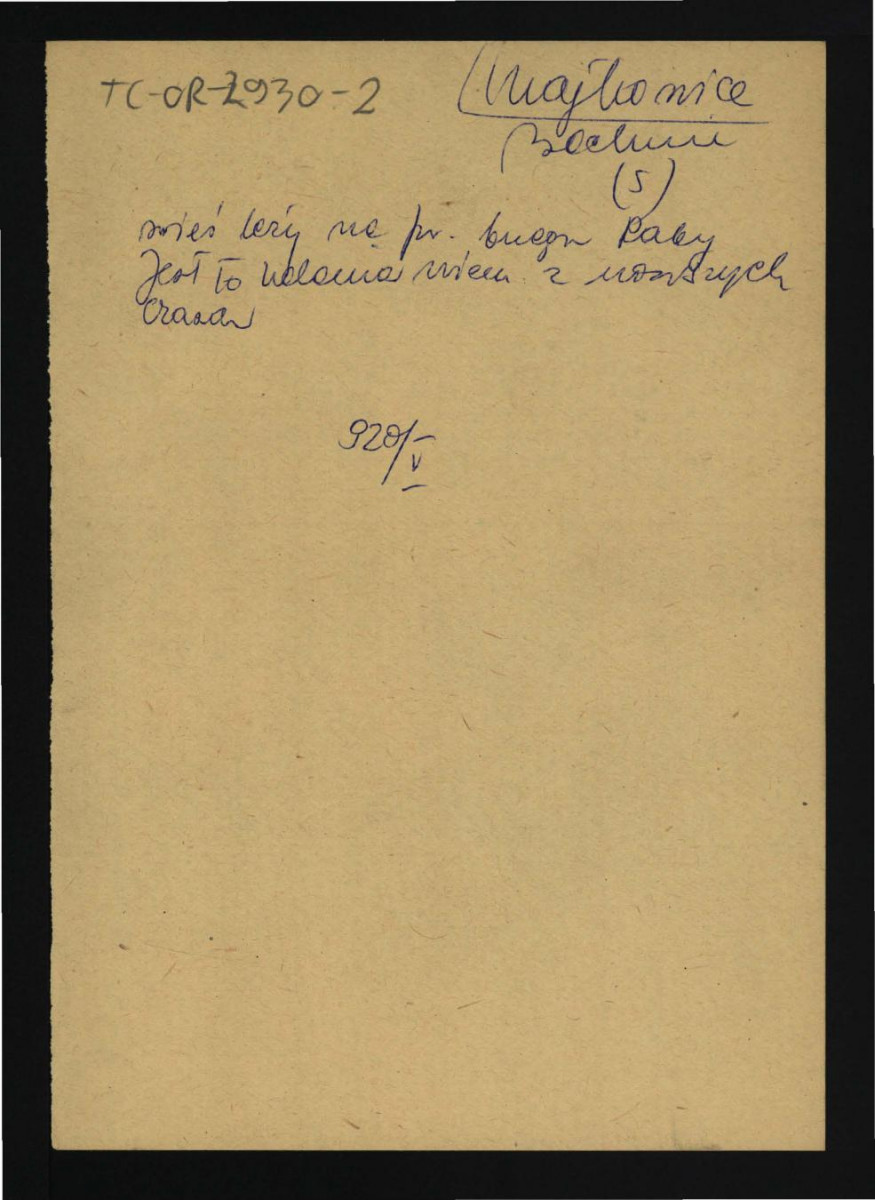 TC-OR-Z930-2
Majkowice
Bochnia
(5)
wieś leży na pr. brzegu Raby
Jest to kolonia niem. z nowszych
czasów
920/V